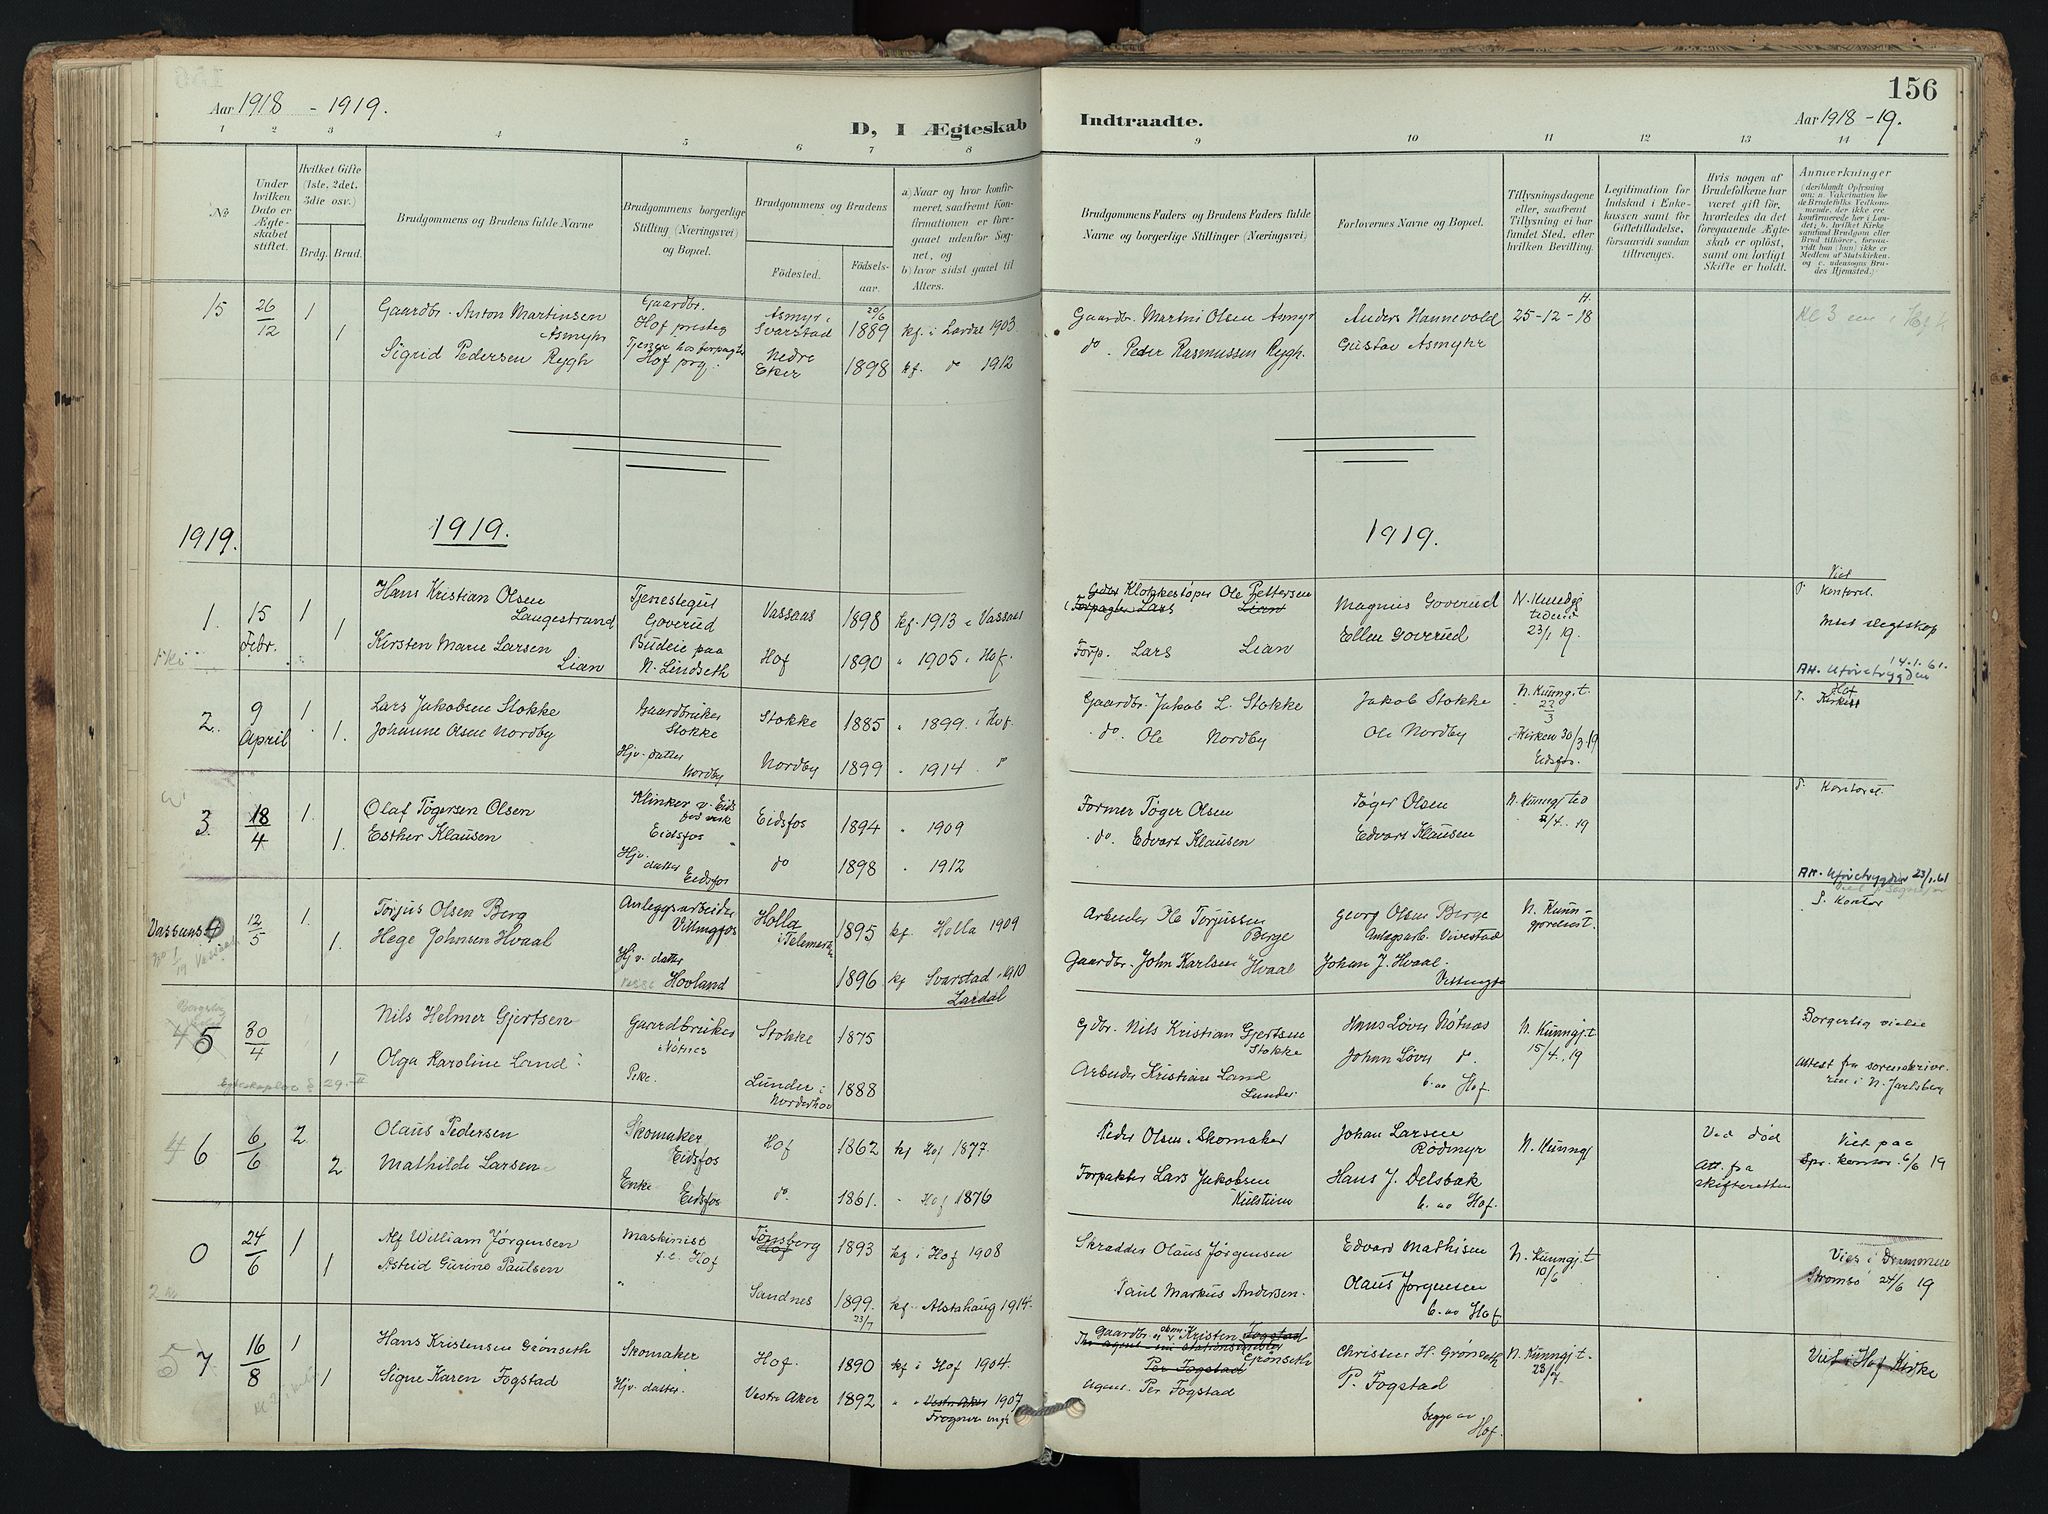 Aar 1918 - 1919.
D, I Ægteskab
Indtraadte.
156
Aar 1918 - 19.
1 2 3 4 5 6 7 8
9 10 11 12 13 14
No
Under hvilken Dato er Ægteskabet stiftet.
Hvilket Gifte (1ste, 2det, 3die osv.)
Brdg. Brud.
Brudgommens og Brudens fulde Navne
Brudgommens borgerlige Stilling (Næringsvei) og Bopæl.
Brudgommens og Brudens
Födested.
Födselsaar.
a) Naar og hvor konfirmeret, saafremt Konfirmationen er foregaaet udenfor Sognet, og
b) hvor sidst gaaet til Alters.
Brudgommens Faders og Brudens Faders fulde Navne og borgerlige Stillinger (Næringsvei)
Forlovernes Navne og Bopæl.
Tillysningsdagene eller, saafremt Tillysning ei har fundet Sted, efter hvilken Bevilling.
Legitimation for Indskud i Enkekassen samt for Giftetilladelse, forsaavidt saadan tiltrænges.
Hvis nogen af Brudefolkene har været gift før, hvorledes da det foregaaende Ægteskab er oplöst, samt om lovligt Skifte er holdt.
Anmærkninger
15 26/12 1 Gaardbr. Anton Martinsen Asmyhr Gaardbr. Hof presteg Asmyr i Svarstad 20/6 1889 kf. i Lardal 1903
1 Sigrid Pedersen Rygh Tjener hos forpagter Hof prg. Nedre Eker 1898 kf. do 1912
Gaardbr. Martin Olsen Asmyr Anders Hannevold 25-12-18
do. Peder Rasmussen Rygh. Gustav Asmyhr
1919.
1919.
1919.
1. 15 Febr. 1 Hans Kristian Olsen Langestrand Tjenestegut Goverud Vassaas 1898 kf. 1913 i Vassaas
1 Kirsten Marie Larsen Lian Budeie paa N. Lindseth Hof 1890 " 1905 i Hof.
Klokkestøper Ole Pettersen Magnus Goverud 23/1 19. Viet Kontoret.
Forp. Lars Lian Ellen Goverud
14.1.61.
2. 9 April 1 Lars Jakobsen Stokke Gaardbruker Stokke Stokke 1885 " 1899. i Hof.
1. Johanne Olsen Nordby Hjv. datter Nordby Nordby 1899 " 1914
Gaardbr. Jakob L. Stokke Jakob Stokke N. Kunng. t. 22/3 Hof Kirke
do. Ole Nordby Ole Nordby Kirken 30/3.19 Eidsfos.
3 18/4 1. Olaf Tøgersen Olsen Klinker v. Eidsfos verk Eidsfos Eidsfos 1894 " 1909
1. Esther Klausen Hjv. datter Eidsfos do 1898 " 1912
Former Tøger Olsen Tøger Olsen /4. 19 Kontoret.
do. Edvart Klausen Edvart Klausen
23/1.61
Vassaas 4 12/5 1. Torjus Olsen Berg Anlegsarbeider Vittingfos Holla i Telemark 1895 kf. Holla 1909
1. Hege Johnsen Hvaal Hjv. datter Hovland 1896 kf Svarstad 1910 Lardal
Arbeider Ole Torjussen Berge Georg Olsen Berge Anlægsarb. Vivestad N. Kunngjordenst. Kontor
Gaardbr. John Karlsen Hvaal Johan J. Hvaal.
5 30/4 Nils Helmer Gjertsen Gaardbruker Nøtnes Stokke 1875
1 Olga Karoline Land Pike. Lunder i Norderhov 1888
Gdbr. Nils Kristian Gjertsen Stokke Hans Løver Nøtnæs N. Kunngj.t 15/4. 19 Borgerlig vielse
Arbeider Kristian Land Lunder. Johan Løver do. b. av Hof. Attest fra sorenskriveren i N. Jarlsberg
6 6/6 2 Olaus Pedersen Skomaker Eidsfos Hof 1862 kf Hof 1877.
2 Mathilde Larsen Enke Eidsfos do. 1861. " Hof 1876
Peder Olsen Skomaker Johan Larsen Rødmyr N. Kunngj Ved død Viet paa Spr. kontor. 6/6 19
Forpakter Lars Jakobsen Hans J. Delsbak b. av Hof. Att. fra skifteretten
0 24/6 1 Alf William Jørgensen Maskinist Hof Tønsberg Hof 1893 kf i Hof 1908
1 Astrid Gurine Paulsen " Sandnes 1899. 23/7 kf. Alstahaug 1914.
Skradder Olaus Jørgensen Edvard Mathisen N. Kunngj.t 10/6 Vies i Drammen Strømsø 24/6 19
Paul Markus Andersen. Olaus Jørgensen b. av Hof
7 16/8 1 Hans Kristensen Grønseth Skomaker Hof. 1890 kf i Hof 1904.
1 Signe Karen Fogstad Hjv. datter. Vestre Aker 1892 " " Vestre Aker 1907 Frogner
Gaardbr. Kristen Fogstad Grønseth Christen H. Grønseth N. Kunngj.t. 23/7. Viet i Hof Kirke
Per Fogstad
Agent. Per Fogstad P. Fogstad begge av Hof.